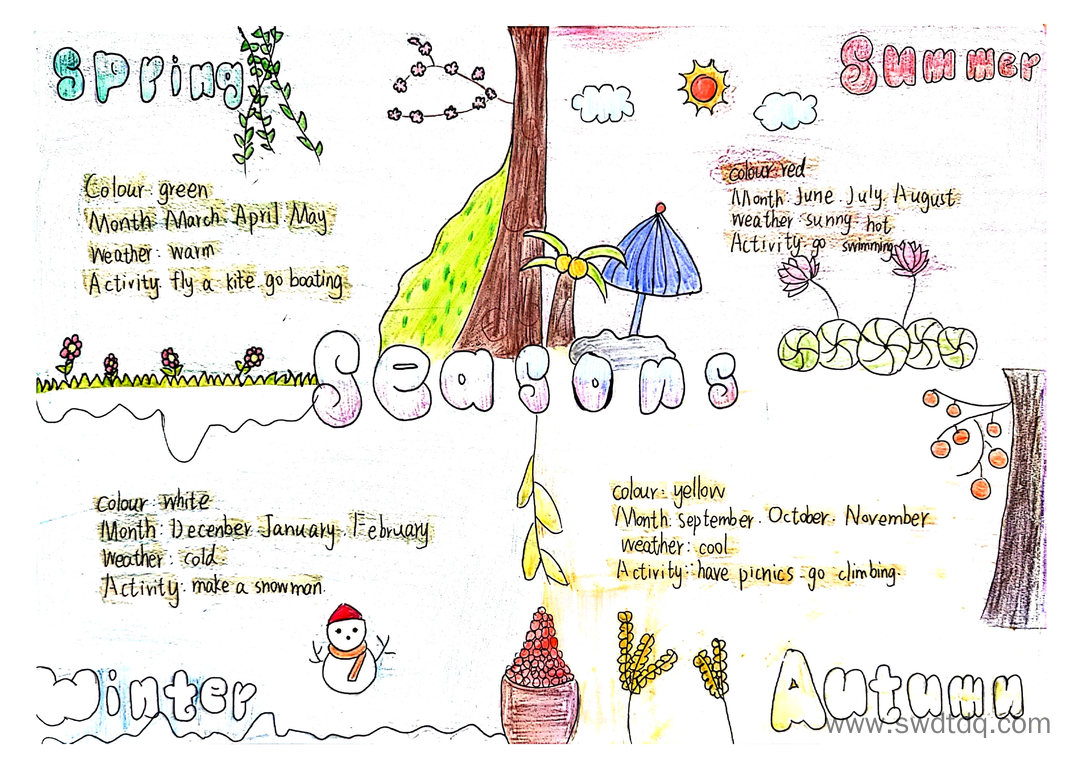 Spring
Summer
Colour: green
Month: March. April May
Weather: warm
Activity: fly a kite. go boating.
colour: red
Month: June. July. August
weather: sunny hot
Activity: go swimming
Seasons
colour: white
Month: December. January. February
Weather: cold.
Activity: make a snowman.
colour: yellow
Month: September. October. November
weather: cool
Activity: have picnics. go climbing.
Winter
Autumn
www.swdtdq.com